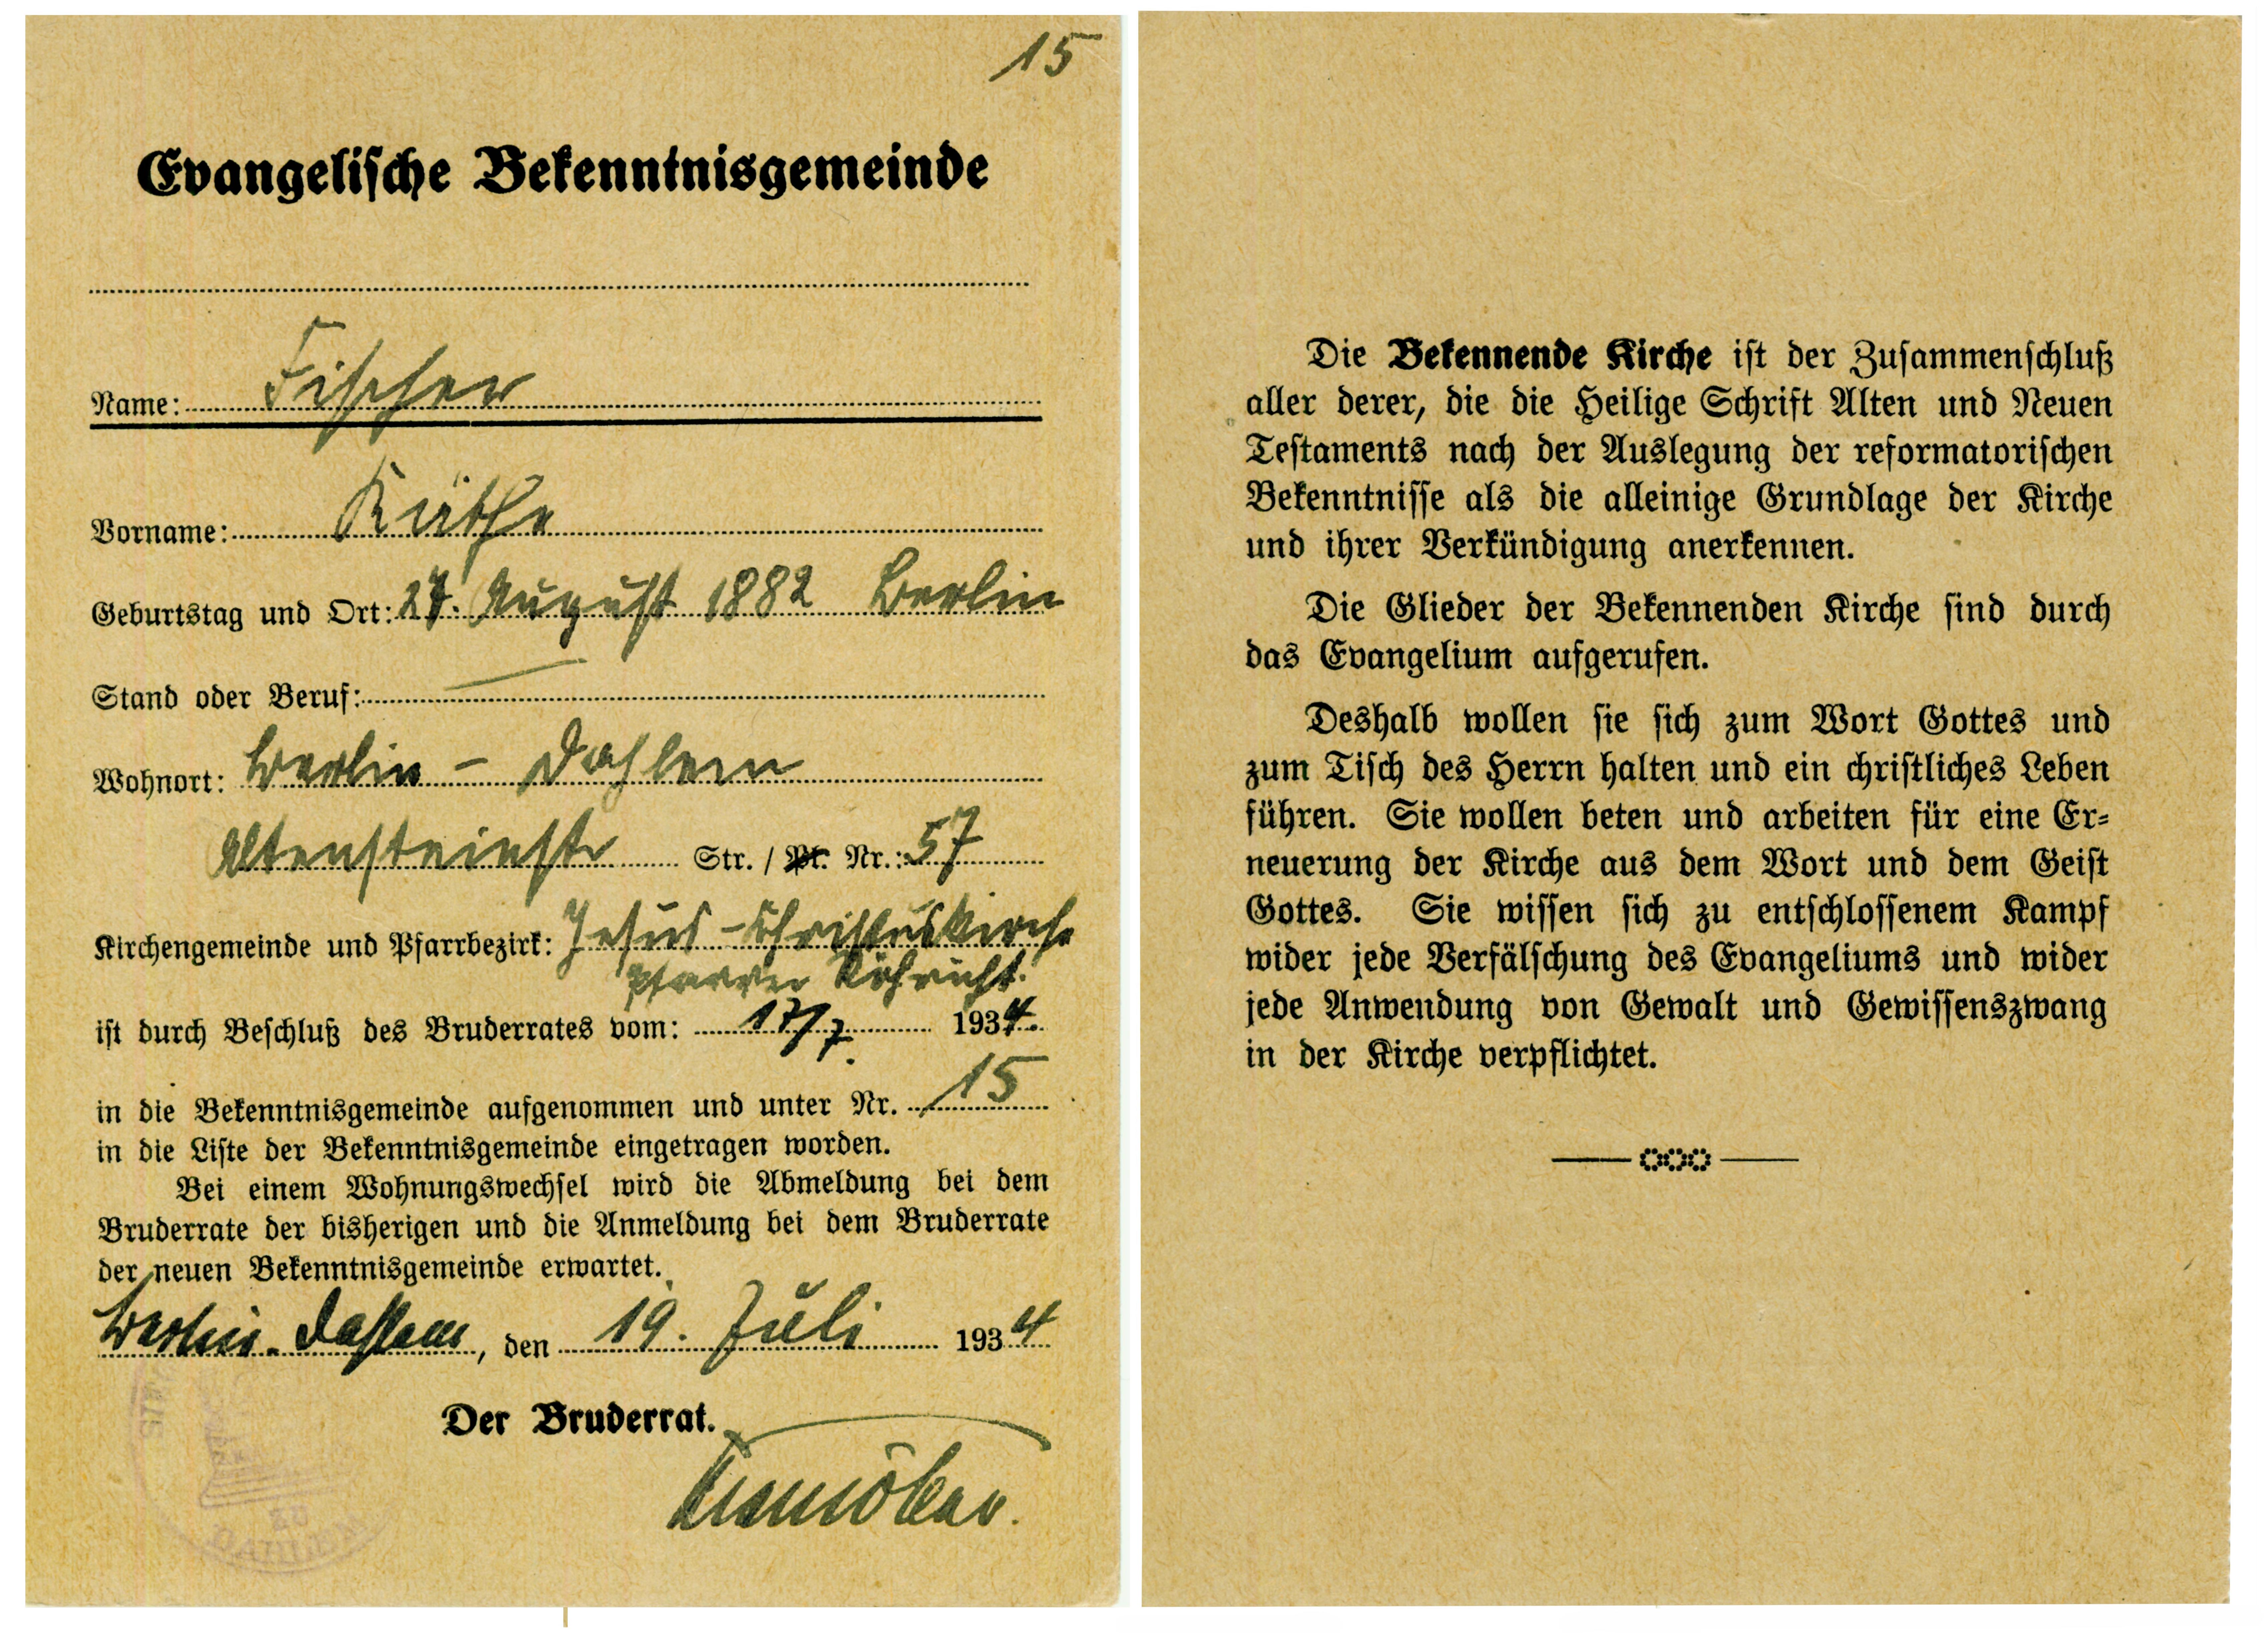 15
Evangelische Bekenntnisgemeinde
Name: Fischer
Vorname: Käthe
Geburtstag und Ort: 27. August 1882 Berlin
Stand oder Beruf: —
Wohnort: Berlin – Dahlem
Altensteinstr Str. / Pl. Nr.: 57
Kirchengemeinde und Pfarrbezirk: Jesus-Christuskirche
Pfarrer Röhricht.
ist durch Beschluß des Bruderrates vom: 17/7. 1934.
in die Bekenntnisgemeinde aufgenommen und unter Nr. 15
in die Liste der Bekenntnisgemeinde eingetragen worden.
Bei einem Wohnungswechsel wird die Abmeldung bei dem
Bruderrate der bisherigen und die Anmeldung bei dem Bruderrate
der neuen Bekenntnisgemeinde erwartet.
Berlin-Dahlem, den 19. Juli 1934
Der Bruderrat.
DAHLEM
Die Bekennende Kirche ist der Zusammenschluß
aller derer, die die Heilige Schrift Alten und Neuen
Testaments nach der Auslegung der reformatorischen
Bekenntnisse als die alleinige Grundlage der Kirche
und ihrer Verkündigung anerkennen.
Die Glieder der Bekennenden Kirche sind durch
das Evangelium aufgerufen.
Deshalb wollen sie sich zum Wort Gottes und
zum Tisch des Herrn halten und ein christliches Leben
führen. Sie wollen beten und arbeiten für eine Er-
neuerung der Kirche aus dem Wort und dem Geist
Gottes. Sie wissen sich zu entschlossenem Kampf
wider jede Verfälschung des Evangeliums und wider
jede Anwendung von Gewalt und Gewissenszwang
in der Kirche verpflichtet.